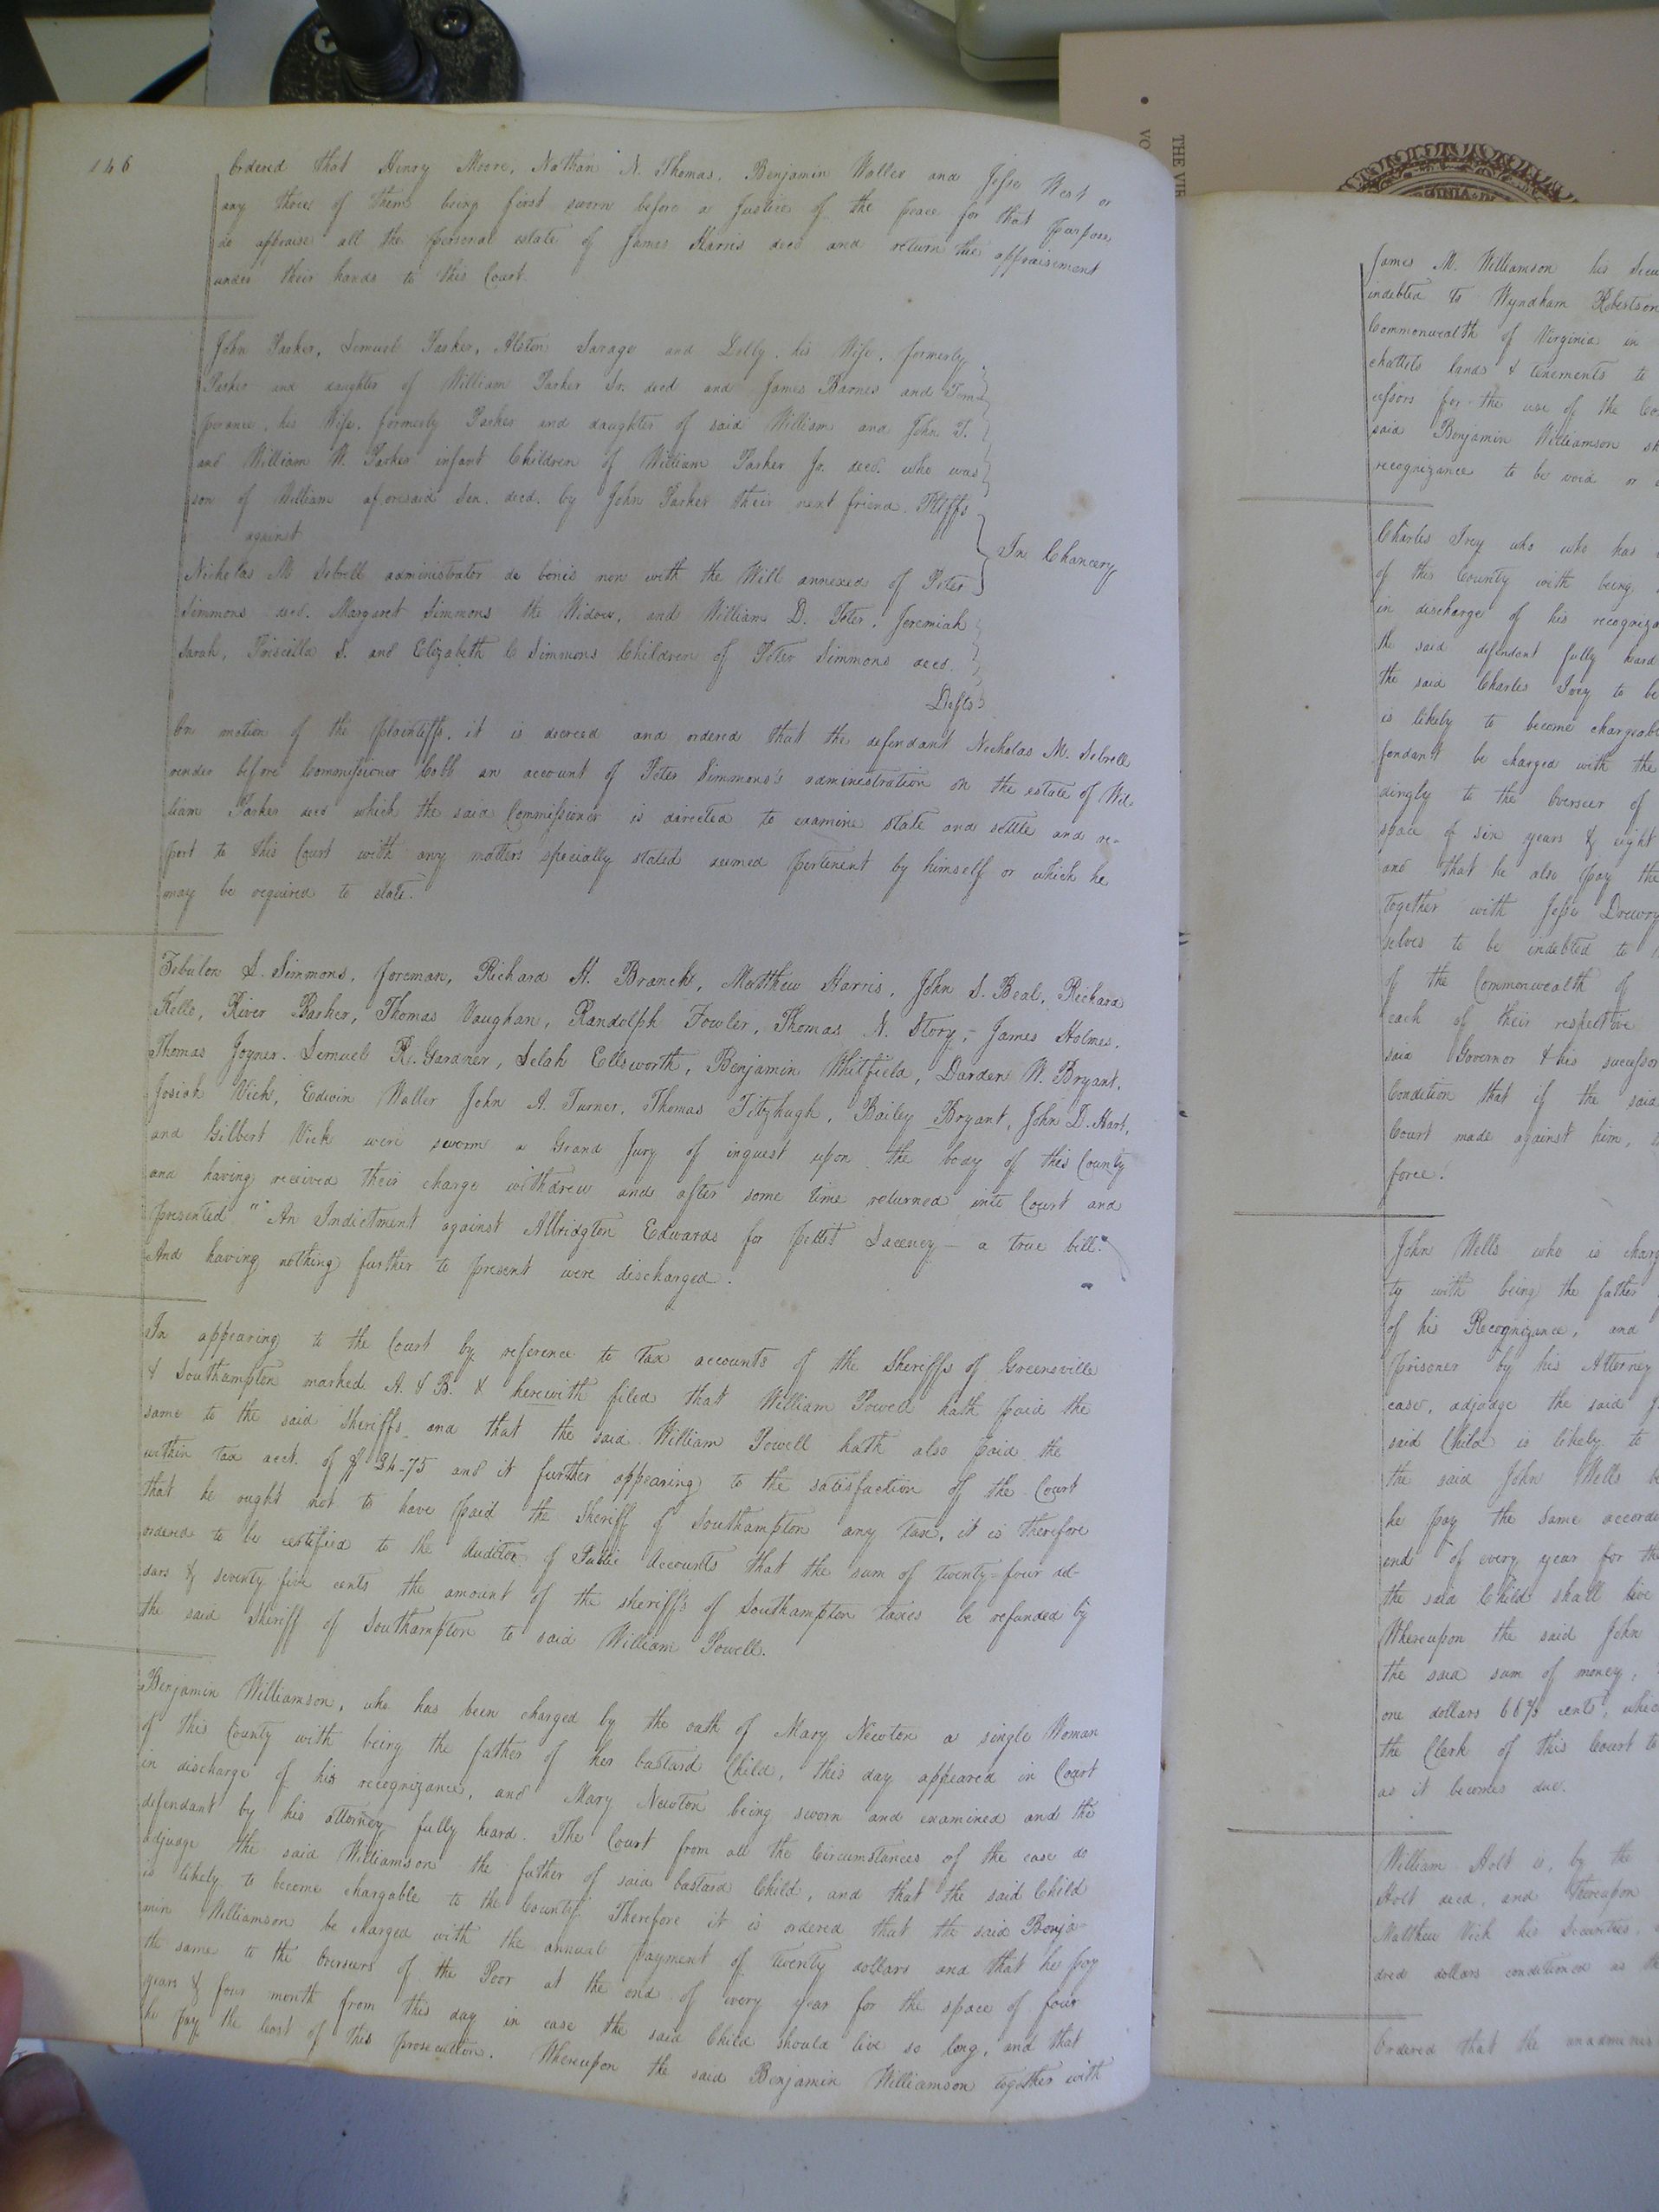 146
Ordered that Henry Moore, Nathan N. Thomas, Benjamin Waller and Jesse West or
any three of them being first sworn before a Justice of the peace for that purpose
do appraise all the personal estate of James Harris decd and return the appraisement
under their hands to this Court.
John Parker, Lemuel Parker, Alston Savage and Dolly his Wife, formerly
Parker and daughter of William Parker Sr. decd and James Barnes and Tem-
perance, his Wife, formerly Parker and daughter of said William and John T.
and William W. Parker infant Children of William Parker Jr. decd. who was
son of William aforesaid Sen. decd. by John Parker their next friend. Pltffs
against
In Chancery
Nicholas M Sebrell administrator de bonis non with the Will annexed of Peter
Simmons decd. Margaret Simmons the Widow, and William D. Peter, Jeremiah
Sarah, Priscilla S. and Elizabeth C Simmons Children of Peter Simmons decd.
Defts
On motion of the plaintiffs, it is decreed and ordered that the defendant Nicholas M. Sebrell
render before Commissioner Cobb an account of Peter Simmons's administration on the estate of Wil-
liam Parker decd which the said Commissioner is directed to examine state and settle and re-
port to this Court with any matters specially stated deemed pertinent by himself or which he
may be required to state.
Zebulon S. Simmons, foreman, Richard H. Branch, Matthew Harris, John S. Beal, Richard
Kello, River Barker, Thomas Vaughan, Randolph Fowler, Thomas N. Story, James Holmes,
Thomas Joyner. Lemuel R. Gardner, Selah Ellsworth, Benjamin Whitfield, Darden W. Bryant,
Josiah Vick, Edwin Waller John A. Turner, Thomas Fitzhugh, Bailey Bryant, John D. Hart,
and Gilbert Vick were sworn a Grand Jury of inquest upon the body of this County
and having received their charge withdrew and after some time returned into Court and
presented "An Indictment against Albridgton Edwards for pettit Larceny - a true bill."
And having nothing further to present were discharged.
In appearing to the Court by reference to Tax accounts of the Sheriffs of Greensville
& Southampton marked A. & B. & herewith filed that William Powell hath paid the
same to the said Sheriffs and that the said William Powell hath also paid the
within tax acct. of $ 24-75 and it further appearing to the satisfaction of the Court
that he ought not to have paid the Sheriff of Southampton any Tax, it is therefore
ordered to be certified to the Auditor of Public Accounts that the sum of twenty=four dol-
lars & seventy five cents the amount of the sheriffs of Southampton taxes be refunded by
the said Sheriff of Southampton to said William Powell.
Benjamin Williamson, who has been charged by the oath of Mary Newton a single Woman
of this County with being the father of her bastard Child, this day appeared in Court
in discharge of his recognizance, and Mary Newton being sworn and examined and the
defendant by his attorney fully heard. The Court from all the Circumstances of the case do
adjudge the said Williamson the father of said bastard Child, and that the said Child
is likely to become chargable to the County. Therefore it is ordered that the said Benja-
min Williamson be charged with the annual payment of twenty dollars and that he pay
the same to the Overseers of the Poor at the end of every year for the space of four
years & four month from this day in case the said Child should live so long, and that
he pay the Cost of this prosecution. Whereupon the said Benjamin Williamson together with
THE VIR
VO
James M. Williamson his
indebted to Wyndham Robertson
Commonwealth of Virginia in
chattels lands & tenements to
cessors for the use of the
said Benjamin Williamson
recognizance to be void or
Charles Ivey who who has
of this County with being
in discharge of his
the said defendant fully heard
the said Charles Ivey to be
is likely to become
fendant be charged with the
dingly to the Overseer of
space of six years & eight
and that he also pay the
together with Jesse Drewry
selves to be indebted to
of the Commonwealth of
each of their respective
said Governor & his
Condition that if the said
Court made against him,
force.
John Wells who is
ty with being the father
of his Recognizance, and
prisoner by his Attorney
case, adjudge the said
said Child is likely to
the said John Wells
he pay the same
end of every year for the
the said Child shall live
Whereupon the said John
the said sum of money,
one dollars 66⅔ cents, which
the Clerk of this Court to
as it becomes due.
William Holt is, by the
Holt decd, and thereupon
Matthew Vick his Securities,
dred dollars conditioned as
Ordered that the